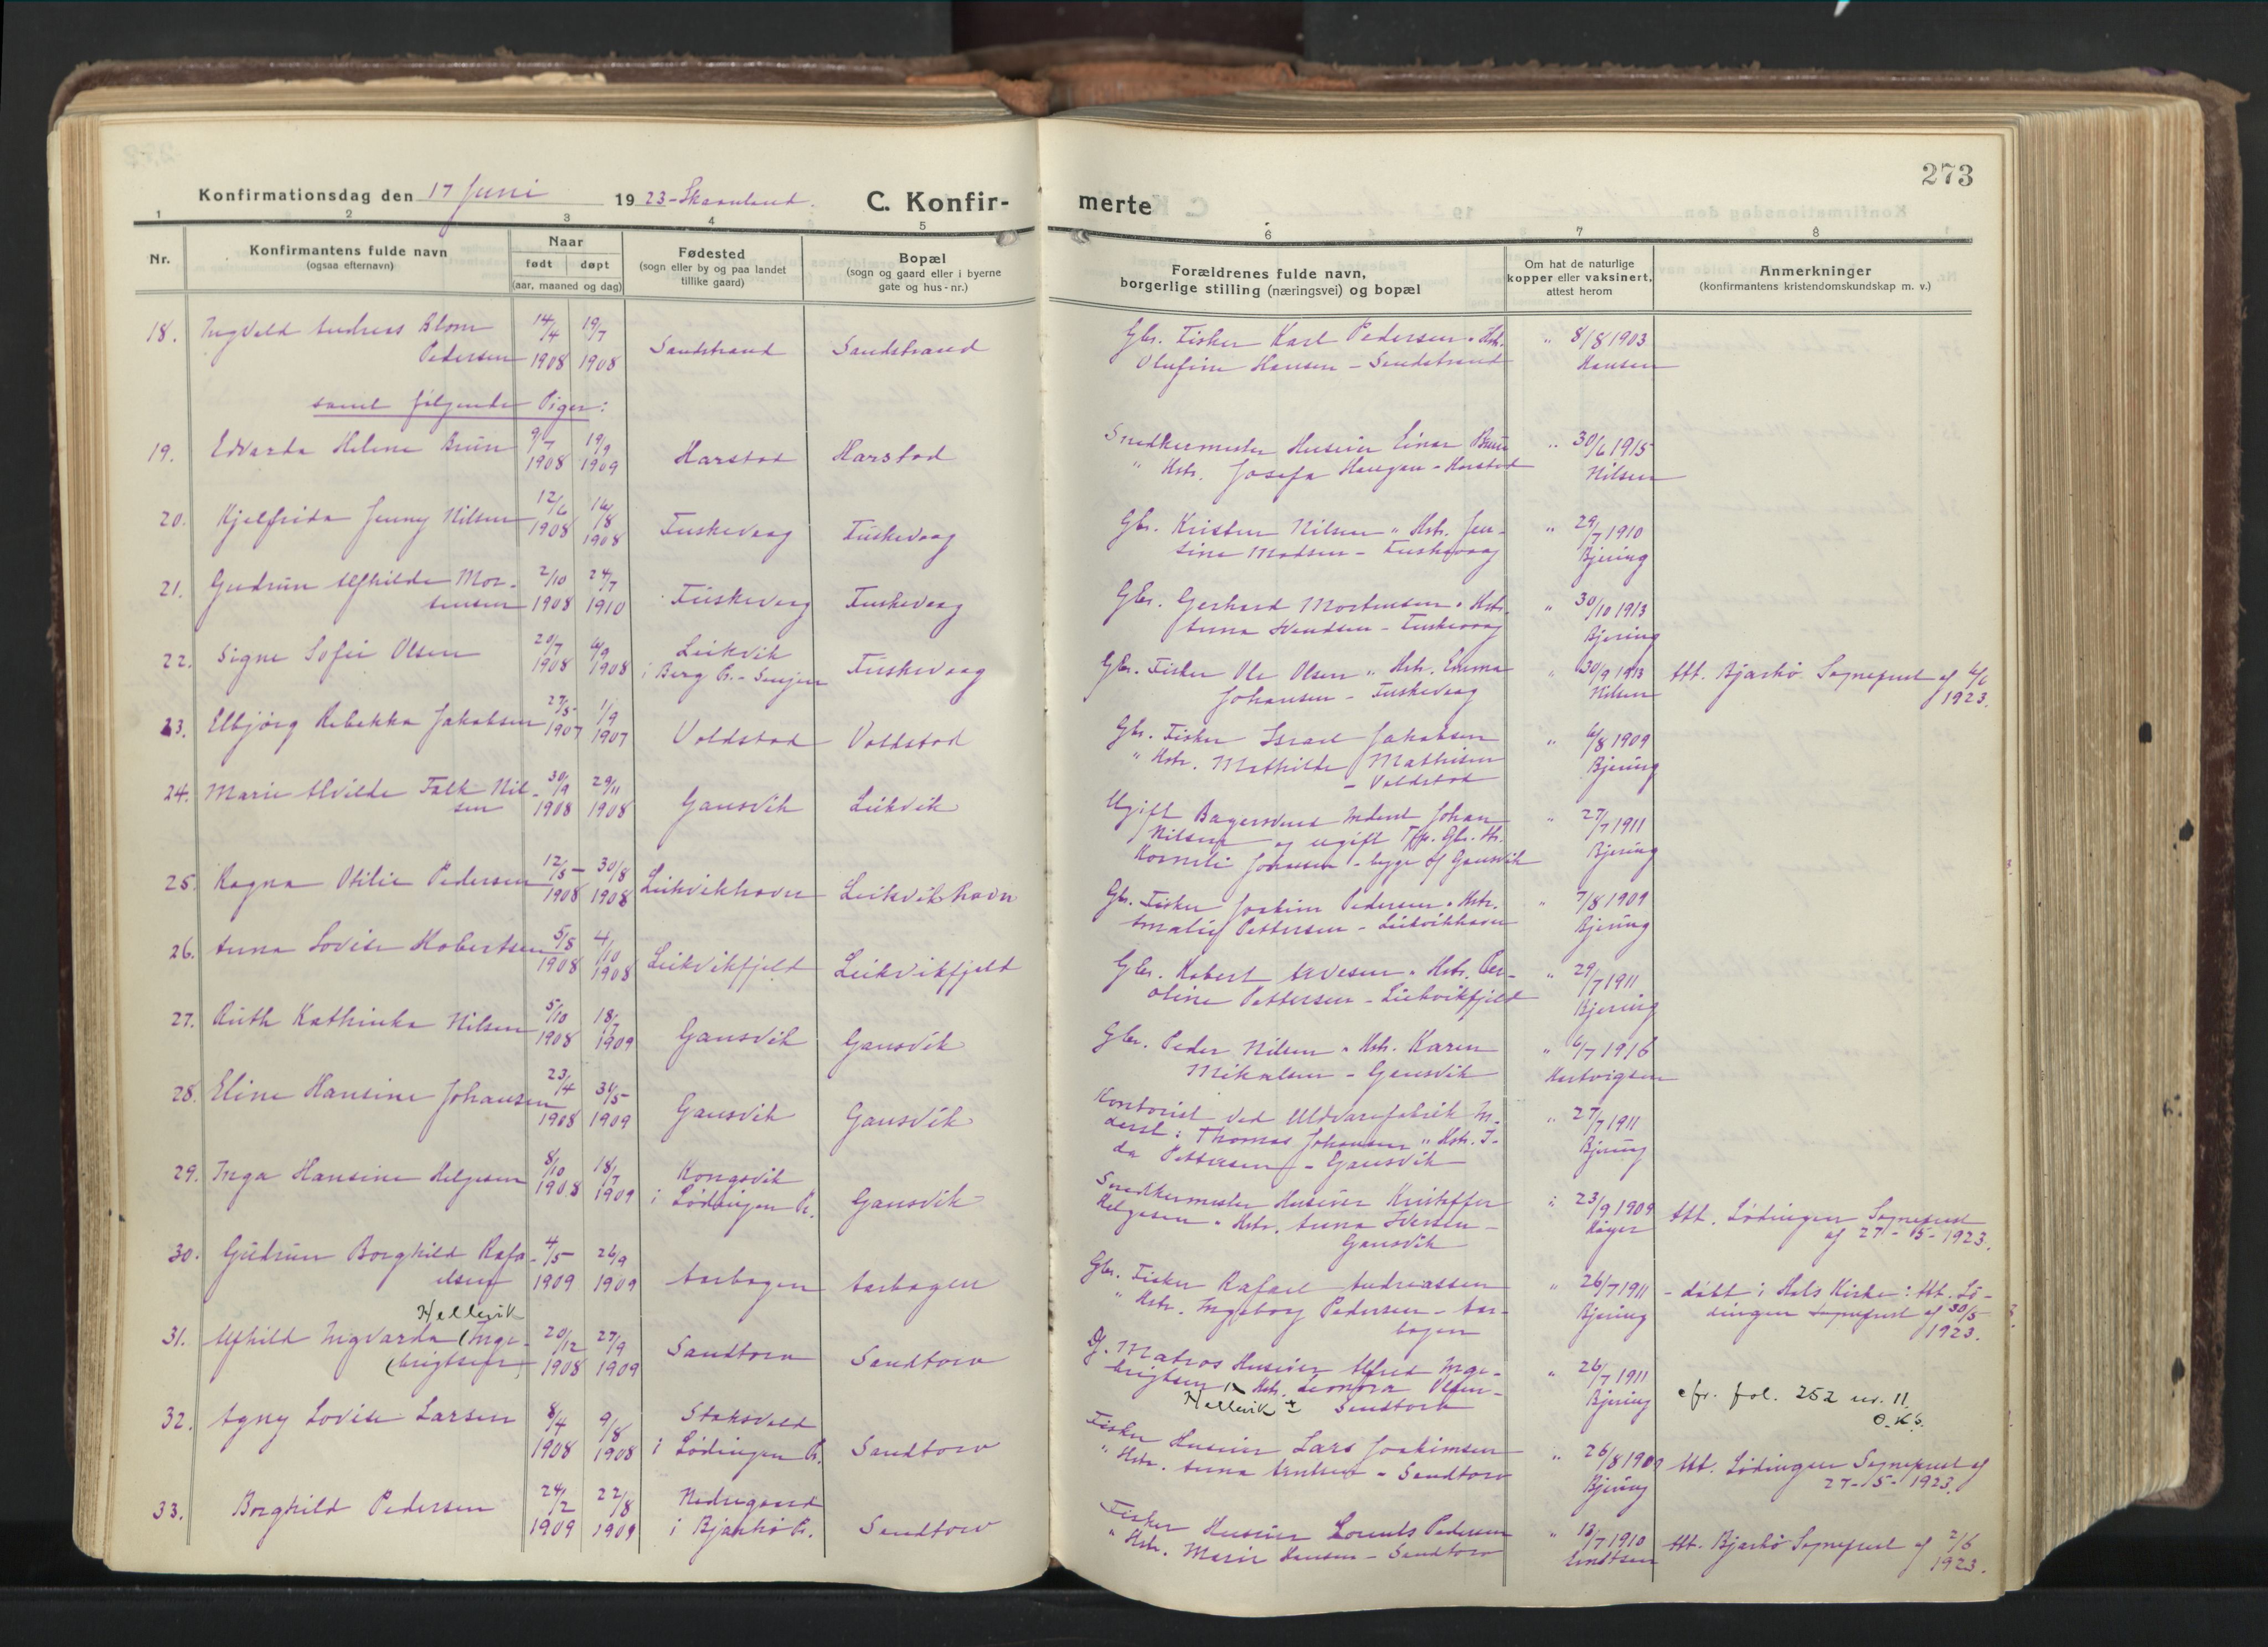 273
Konfirmationsdag den 17 Juni 1923 - Skaanland.
C. Konfir-
merte
1 2 3 4 5
6 7 8
Nr.
Konfirmantens fulde navn
(ogsaa efternavn)
Naar
født døpt
(aar, maaned og dag)
Fødested
(sogn eller by og paa landet
tillike gaard)
Bopæl
(sogn og gaard eller i byerne
gate og hus-nr.)
Forældrenes fulde navn,
borgerlige stilling (næringsvei) og bopæl
Om hat de naturlige
kopper eller vaksinert,
attest herom
Anmerkninger
(konfirmantens kristendomskundskap m. v.)
18. Ingvald Andreas Blom 14/4 19/7 Sandstrand Sandstrand Gbr. Fisker Karl Pedersen " Hstr. " 8/8 1903
Pedersen 1908 1908 Olufine Hansen - Sandstrand Hansen
samt følgende Piger:
19. Edvarda Helene Bruun 9/7 19/9 Harstad Harstad Snedkermester Huseier Einar Bruun " 30/6 1915
1908 1909 " Hstr. Josefa Haugan - Harstad Nilsen
20. Kjelfrida Jenny Nilsen 12/6 16/8 Fuskevaag Fuskevaag Gbr. Kristen Nilsen " Hstr. Jen- " 29/7 1910
1908 1908 sine Madsen - Fuskevaag Bjering
21. Gudrun Alfhilde Mor- 2/10 24/7 Fuskevaag Fuskevaag Gbr. Gerhard Mortensen " Hstr. " 30/10 1913
tensen 1908 1910 Anna Svendsen - Fuskevaag Bjering
22. Signe Sofie Olsen 20/7 6/9 Leikvik Fuskevaag Gbr. Fisker Ole Olsen " Hstr. Emma " 30/9 1913 Att. Bjarkø Sogneprest af 6/6
1908 1908 i Berg P. - Senjen Johansen - Fuskevaag Nilsen 1923.
23. Elbjørg Rebekka Jakobsen 27/5 1/9 Voldstad Voldstad Gbr. Fisker Israel Jakobsen " 6/8 1909
1907 1907 " Hstr. Mathilde Mathisen Bjering
- Voldstad
24. Marie Alvilde Falk Nil- 30/9 29/11 Gausvik Leikvik Ugift Bagersvend Johan " 27/7 1911
sen 1908 1908 Nilsen og ugift Gbr. Bjering
Kornelie Johansen - begge af Gausvik
25. Ragna Otilie Pedersen 12/5 30/8 Leikvikhavn Leikvikhavn Gbr. Fisker Joakim Pedersen " Hstr. " 7/8 1909
1908 1908 Amalie Pettersen - Leikvikhavn Bjering
26. Anna Lovise Robertsen 5/8 4/10 Leikvikfjeld Leikvikfjeld Gbr. Robert Arvesen " Hstr. Per- " 29/7 1911
1908 1908 oline Pettersen - Leikvikfjeld Bjering
27. Ruth Kathinka Nilsen 5/10 18/7 Gausvik Gausvik Gbr. Peder Nilsen " Hstr. Karen " 6/7 1916
1908 1909 Mikalsen - Gausvik Hartvigsen
28. Eline Hansine Johansen 23/4 31/5 Gausvik Gausvik Kontorist ved Uldvarefabrik In- " 27/7 1911
1908 1909 derst: Thomas Johansen " Hstr. I- Bjering
da Pettersen - Gausvik
29. Inga Hansine Helgesen 8/10 18/7 Kongsvik Gausvik Snedkermester Huseier Kristoffer " 23/9 1909 Att. Lødingen Sogneprest
1908 1909 i Lødingen P. Helgesen " Hstr. Anna Iversen - Røyer af 27-5-1923.
Gausvik
30. Gudrun Borghild Rafa- 4/5 26/9 Aarbogen Aarbogen Gbr. Fisker Rafael Andreassen " 26/7 1911 - døbt i Hols Kirke: Att. Lø-
elsen 1909 1909 " Hstr. Ingeborg Pedersen - Aar- Bjering dingen Sogneprest af 30/5
bogen 1923.
Hellevik
31. Alfhild Ingvarda (Inge- 20/12 27/9 Sandtorv Sandtorv Matros Huseier Alfred Inge- " 26/7 1911
(brigtsen) 1908 1909 brigtsen Hstr. Leonora Olsen - Bjering cfr. fol. 252 nr. 11.
Hellevik Sandtorv O.K.
32. Agny Lovise Larsen 8/4 9/8 Stoksvold Sandtorv Fisker Huseier Lars Joakimsen " 26/8 1909 Att. Lødingen Sogneprest af
1908 1908 i Lødingen P. " Hstr. Anna - Sandtorv Bjering 27-5-1923.
33. Borghild Pedersen 24/2 22/8 Nedregaard Sandtorv Fisker Huseier Lorents Pedersen " 18/7 1910 Att. Bjarkø Sogneprest af 2/6
1909 1909 i Bjarkø P. " Hstr. Marie Hansen - Sandtorv 1923.